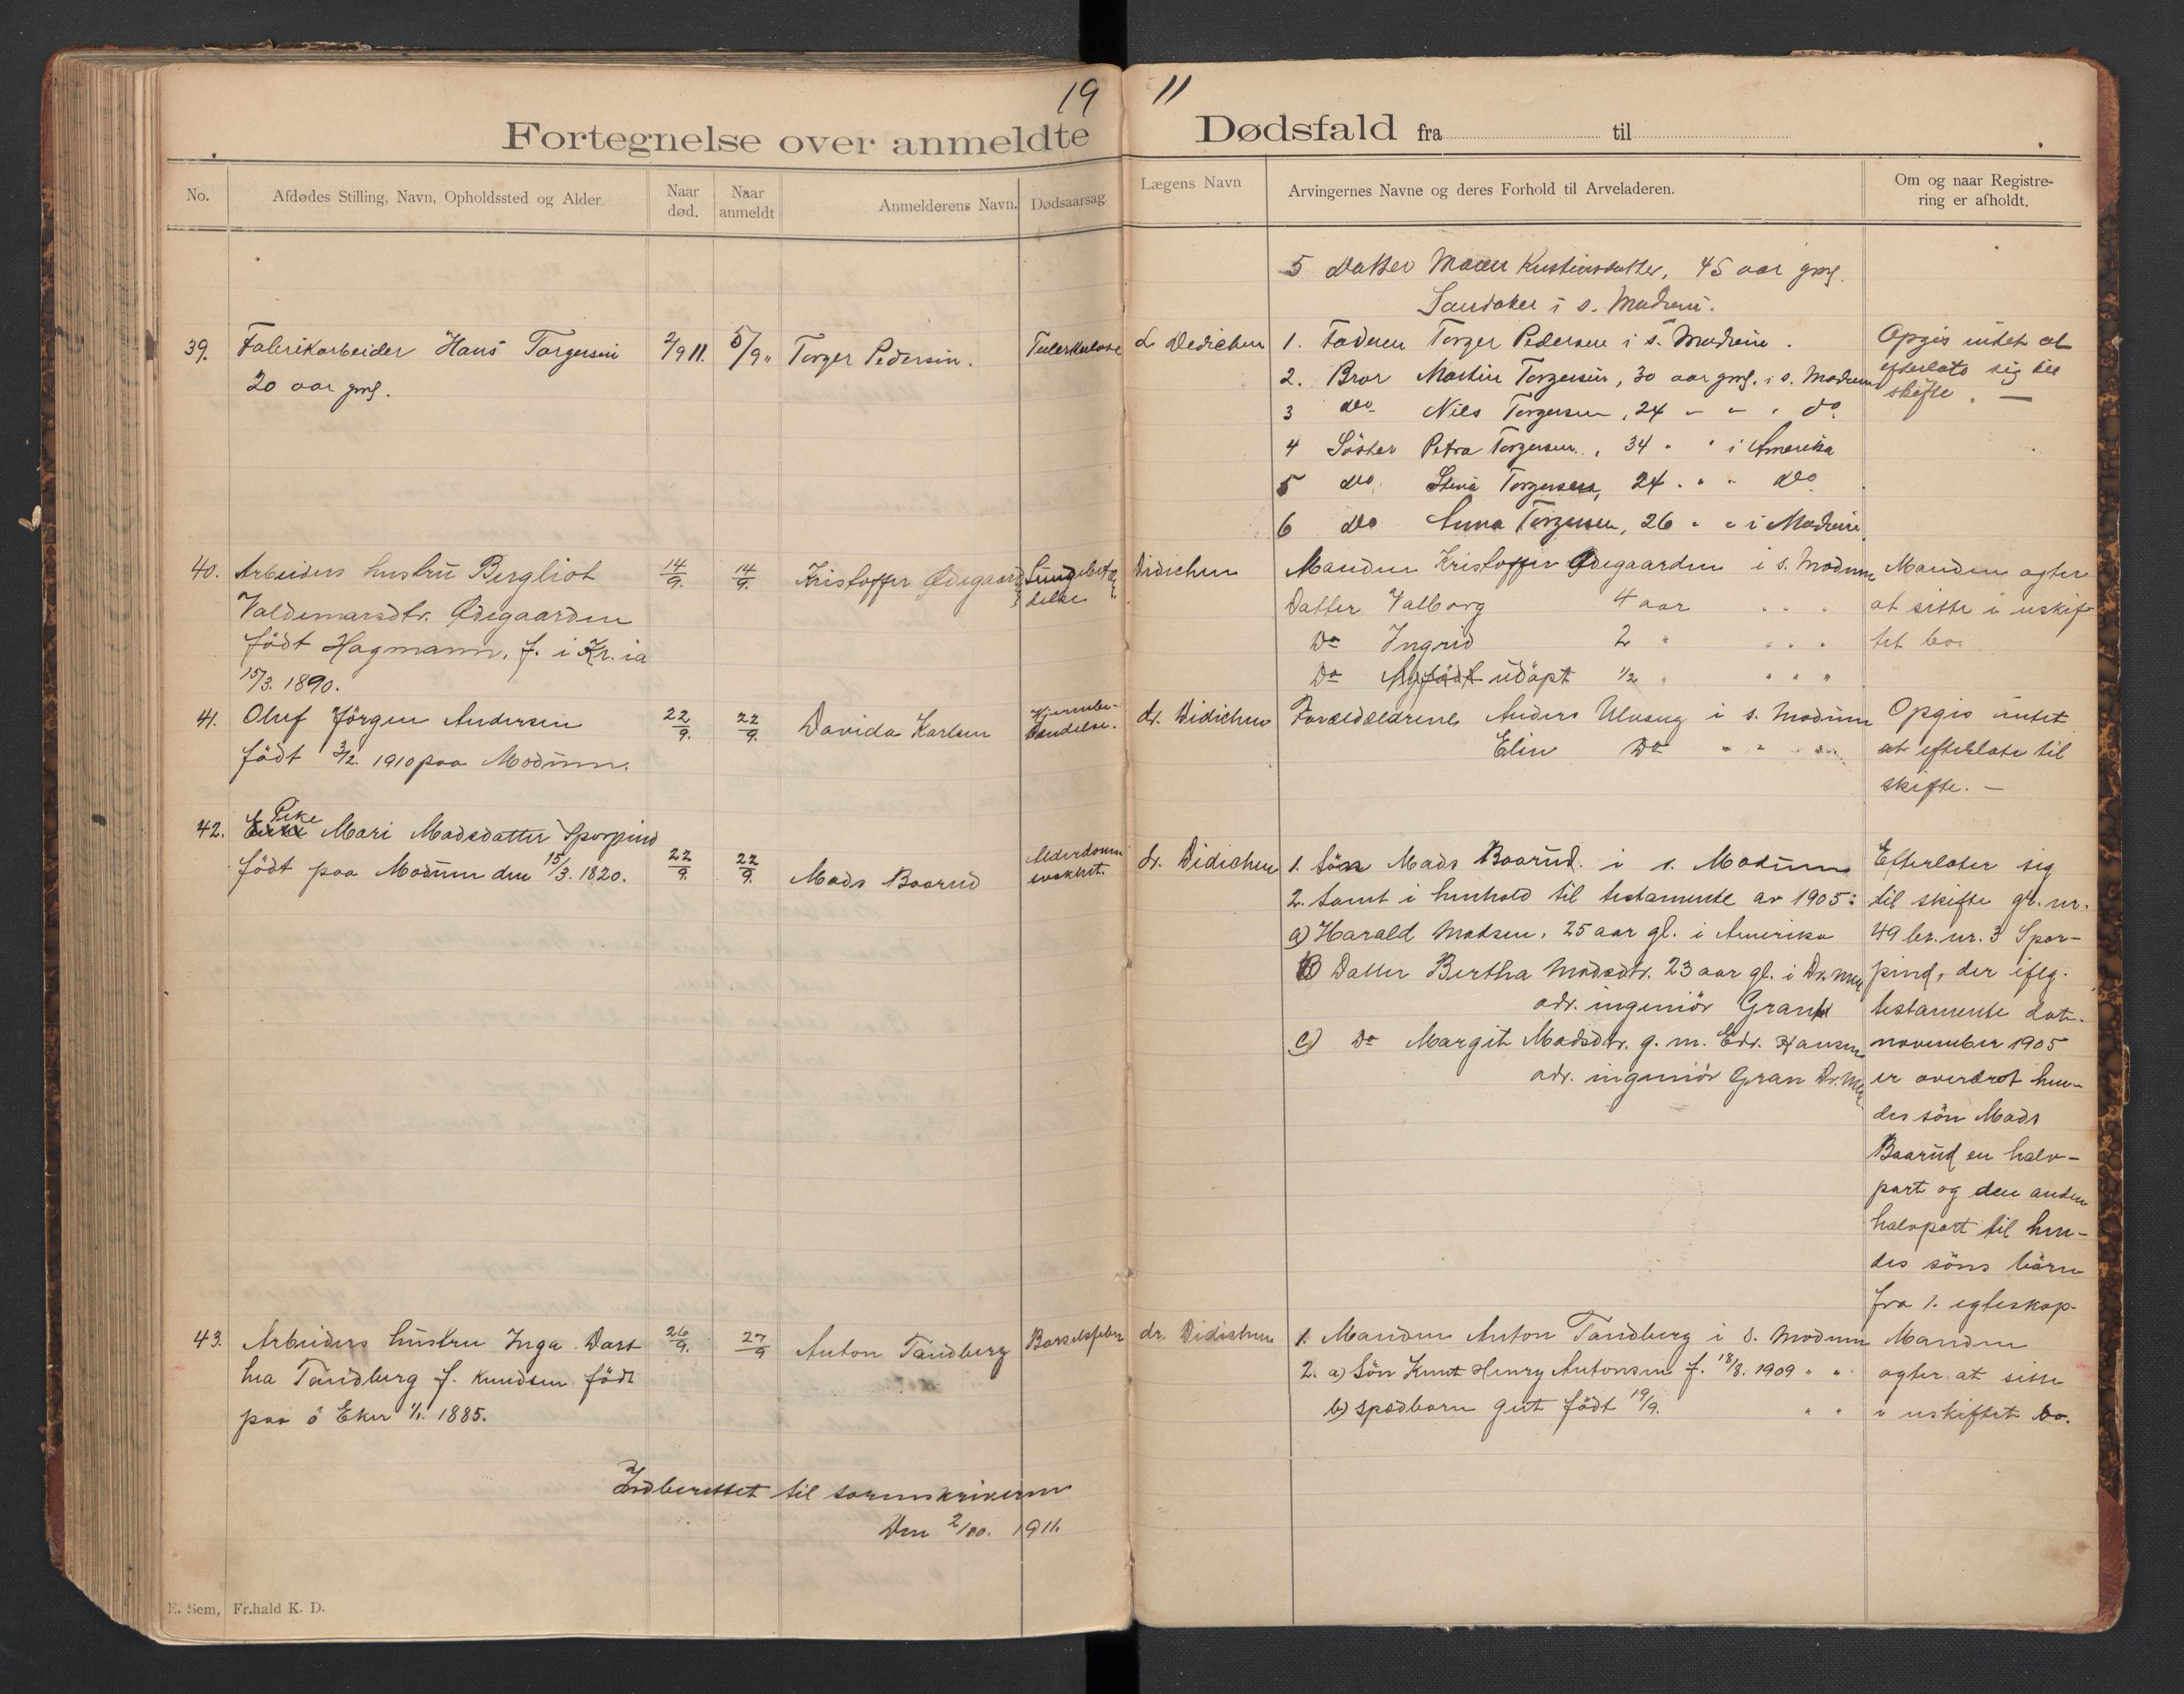 19 11
Fortegnelse over anmeldte Dødsfald fra til
No.
Afdødes Stilling, Navn, Opholdssted og Alder.
Naar død.
Naar anmeldt
Anmelderens Navn.
Dødsaarsag.
Lægens Navn
Arvingernes Navne og deres Forhold til Arveladeren.
Om og naar Registre-
ring er afholdt.
5 Datter Maren Kristiansdatter, 45 aar gml.
Sandaker i s. Modum.
39. Fabrikarbeider Hans Torgersen
20 aar gml.
2/9 11.
5/9 "
Torger Pedersen.
Tuberkulose
Dr Dedichen
1. Faderen Torger Pedersen i s. Modum.
2. Bror Martin Torgersen, 30 aar gml. i s. Modum
3 do Nils Torgersen, 24 " " " do.
4 Söster Petra Torgersen, 34 " " i Amerika
5 do Stina Torgersen, 24 " " do
6 do Anna Torgersen, 26 " " i Modum.
Opgis intet at
efterlate sig til
skifte. —
40. Arbeiders hustru Bergliot
Valdemarsdtr. Ødegaarden
födt Hagmann, f. i Kr.ia
15/3. 1890.
14/9.
14/9.
Kristoffer Ødegaard
Lungebetæn
delse
Didichen
Manden Kristoffer Ødegaarden i s. Modum
Datter Valborg 4 aar " " "
Do Ingrid 2 " " " "
Do Nyfödt udöpt 1/2 " " " "
Manden agter
at sitte i uskif-
tet bo.
41. Oluf Jörgen Andersen
födt 3/12. 1910 paa Modum.
22/9.
22/9.
Davida Karlsen
Hjernebe-
tændelse.
dr. Didichen
Forældrene Anders Ulvsug i s. Modum
Elin Do " " "
Opgis intet
at efterlate til
skifte. —
42. Pike Mari Madsdatter Sporpind
födt paa Modum den 15/3. 1820.
22/9.
22/9.
Mads Baarud
Alderdoms-
svakhet.
dr. Didichen
1. Sön Mads Baarud i s. Modum
2. Samt i henhold til testamente av 1905:
a) Harald Madsen, 25 aar gl. i Amerika
B) Datter Bertha Madsdtr. 23 aar gl. i Dr.men
adr. ingeniör Gran
C) Do Margit Madsdtr. g. m. Edv. Hansen
adr. ingeniör Gran Dr.men
Efterlater sig
til skifte gr. nr.
49 br. nr. 3 Spor-
pind, der iflg.
testamente dat.
november 1905
er overdrat hen-
des sön Mads
Baarud en halv-
part og den anden
halvpart til hen-
des söns börn
fra 1. egteskap.
43. Arbeiders hustru Inga Dort
hea Tandberg f. Knudsen födt
paa ö Eker 1/1. 1885.
26/9.
27/9
Anton Tandberg
Barselsfeber
dr. Didichen
1. Manden Anton Tandberg i s. Modum
2. a) Sön Knut Henry Antonsen f. 18/8. 1909 " "
b) Spædbarn gut födt 19/9. " "
Manden
agter at sitte
i uskiftet bo.
Indberettet til sorenskriveren
Den 2/10. 1911.
E. Sem, Fr.hald K. D.